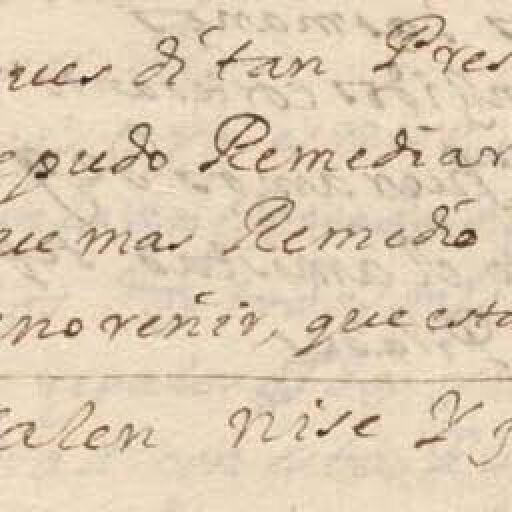 pues si tan Pres
epudo Remediar
ue mas Remedio
eno reñir, que esto
salen Nise Y